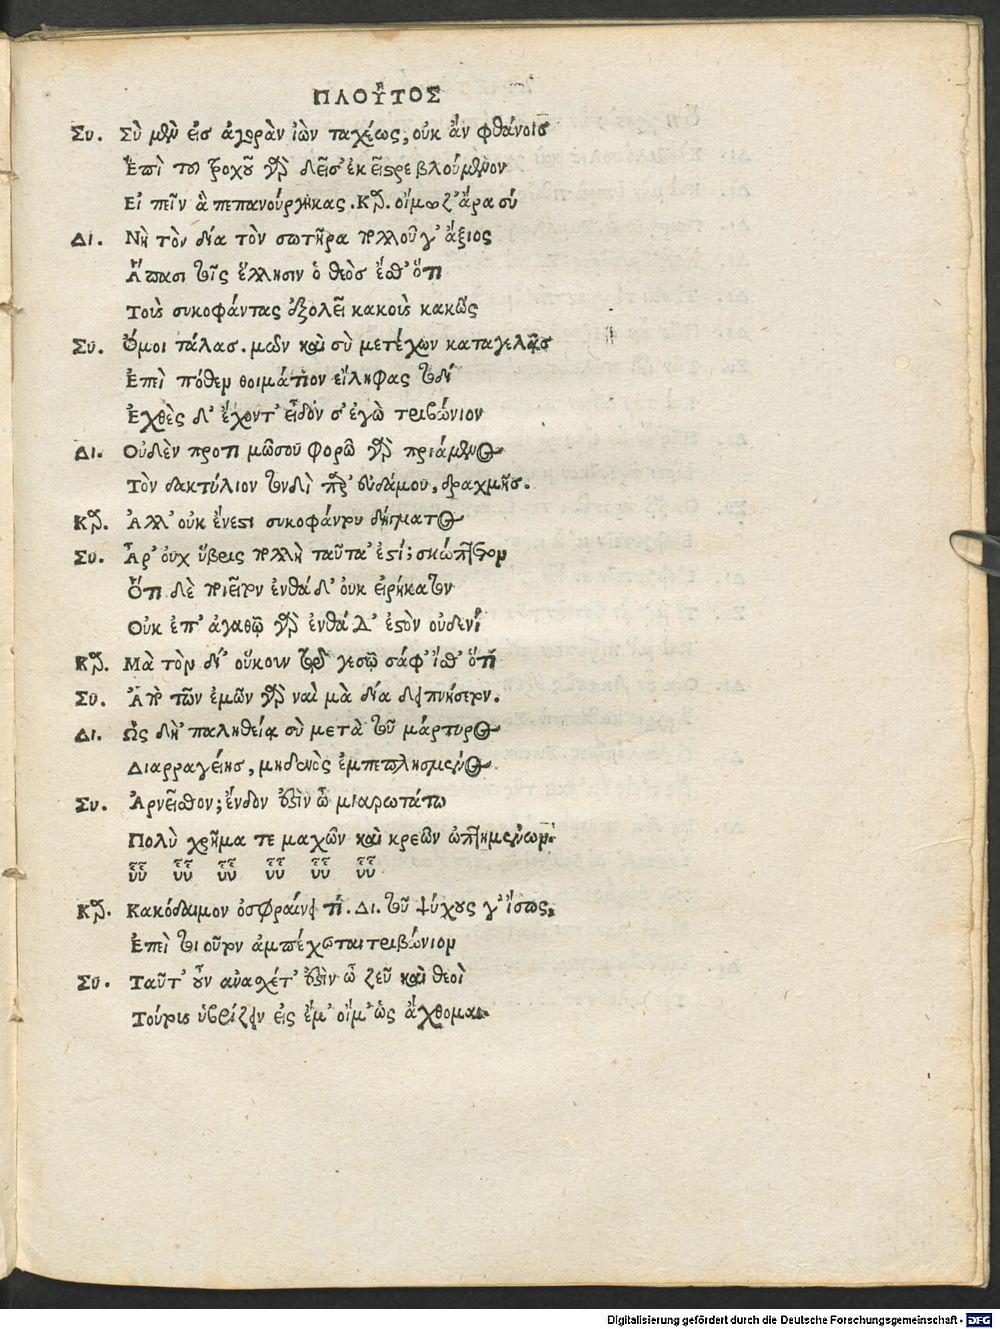 ΠΛΟΥ͂ΤΟΣ
Συ. Σὺ μὲν εἰσ ἀγορὰν ἰὼν ταχέως; οὐκ ἂν φθάνοις
Ἐπὶ τοῦ τροχοῦ γὰρ δεῖσ' ἐκεῖ στρεβλούμενον
Εἰπεῖν ἃ πεπανούργηκας. Καρ. οἴμωζ' ἄρα σύ
Δι. Νὴ τὸν δία τὸν σωτῆρα πολλοῦ γ' ἄξιος
Ἅπασι τοῖς ἕλλησιν ὁ θεὸσ ἔσθ' ὅτι
Τοὺς συκοφάντας ἐξολεῖ κακοὺς κακῶς
Συ. Ὄμοι τάλασ. μῶν καὶ σὺ μετέχων καταγελᾷς
Ἐπεὶ πόθεν θοιμάτιον εἴληφας τοδί
Ἐχθὲς δ' ἔχοντ' εἶδόν σ' ἐγὼ τριβώνιον
Δι. Οὐδὲν προτιμῶ σοῦ φορῶ γὰρ πριάμενος
Τὸν δακτύλιον τονδὶ παρ' εὐδάμου, δραχμῆς.
Καρ. Ἀλλ' οὐκ ἔνεστι συκοφάντου δήγματος
Συ. Ἆρ' οὐχ ὕβρις πολλὴ ταῦτα' ἐστί; σκώπτετον
Ὅτι δὲ ποιεῖτον ἐνθάδ' ὀυκ εἰρήκατον
Οὐκ ἐπ' ἀγαθῷ γὰρ ἐνθάδ' ἐστὸν οὐδενί
Καρ. Μὰ τὸν δί' οὔκουν τῷ γε σῷ σάφ' ἴσθ' ὅτι
Συ. Ἀπὸ τῶν ἐμῶν γὰρ ναὶ μὰ δία δειπνήσετον.
Δι. Ὡς δὴ 'παληθείᾳ σὺ μετὰ τοῦ μάρτυρος
Διαρραγείης, μηδενὸς ἐμπεπλησμένος.
Συ. Ἀρνεῖσθον; ἔνδον ἐστὶν ὦ μιαρωτάτω
Πολὺ χρῆμα τεμαχῶν καὶ κρεῶν ὠπτημένων.
ὗὗ ὗὗ ὗὗ ὗὗ ὗὗ ὗὗ
Καρ. Κακόδαιμον ὀσφραίνει τί. Δι. τοῦ ψύχους γ' ἴσως,
Ἐπεὶ τοιοῦτον ἀμπέχεται τριβώνιον
Συ. Ταῦτ' οὖν ἀνασχέτ' ἐστὶν ὦ ζεῦ καὶ θεοὶ
Τούτους ὑβρίζειν εἰς ἔμ' οἴμ' ὡς ἄχθομαι
Digitalisierung gefördert durch die Deutsche Forschungsgemeinschaft - DFG